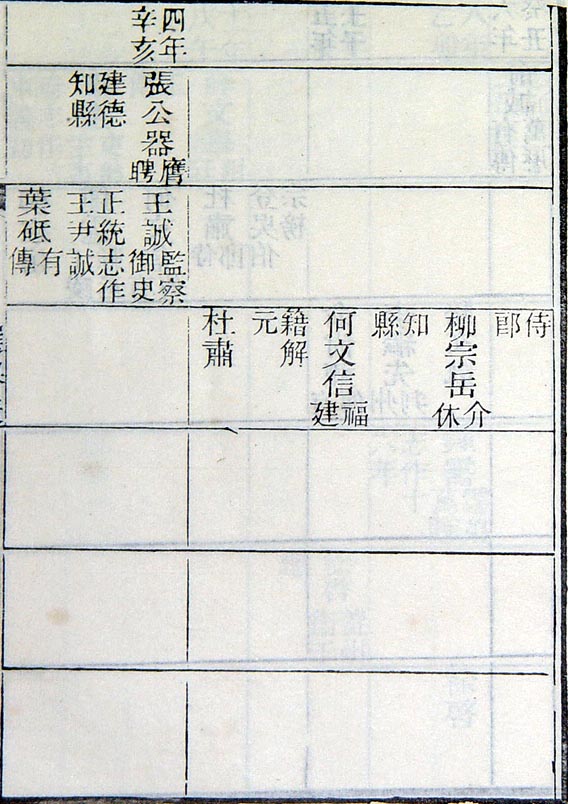 侍郎
柳宗岳介休
知縣
何文信福建
籍解元
杜肅
四年
辛亥
張公器膺聘
建德
知縣
王誠監察御史
正統志作
王尹誠
葉砥有傳